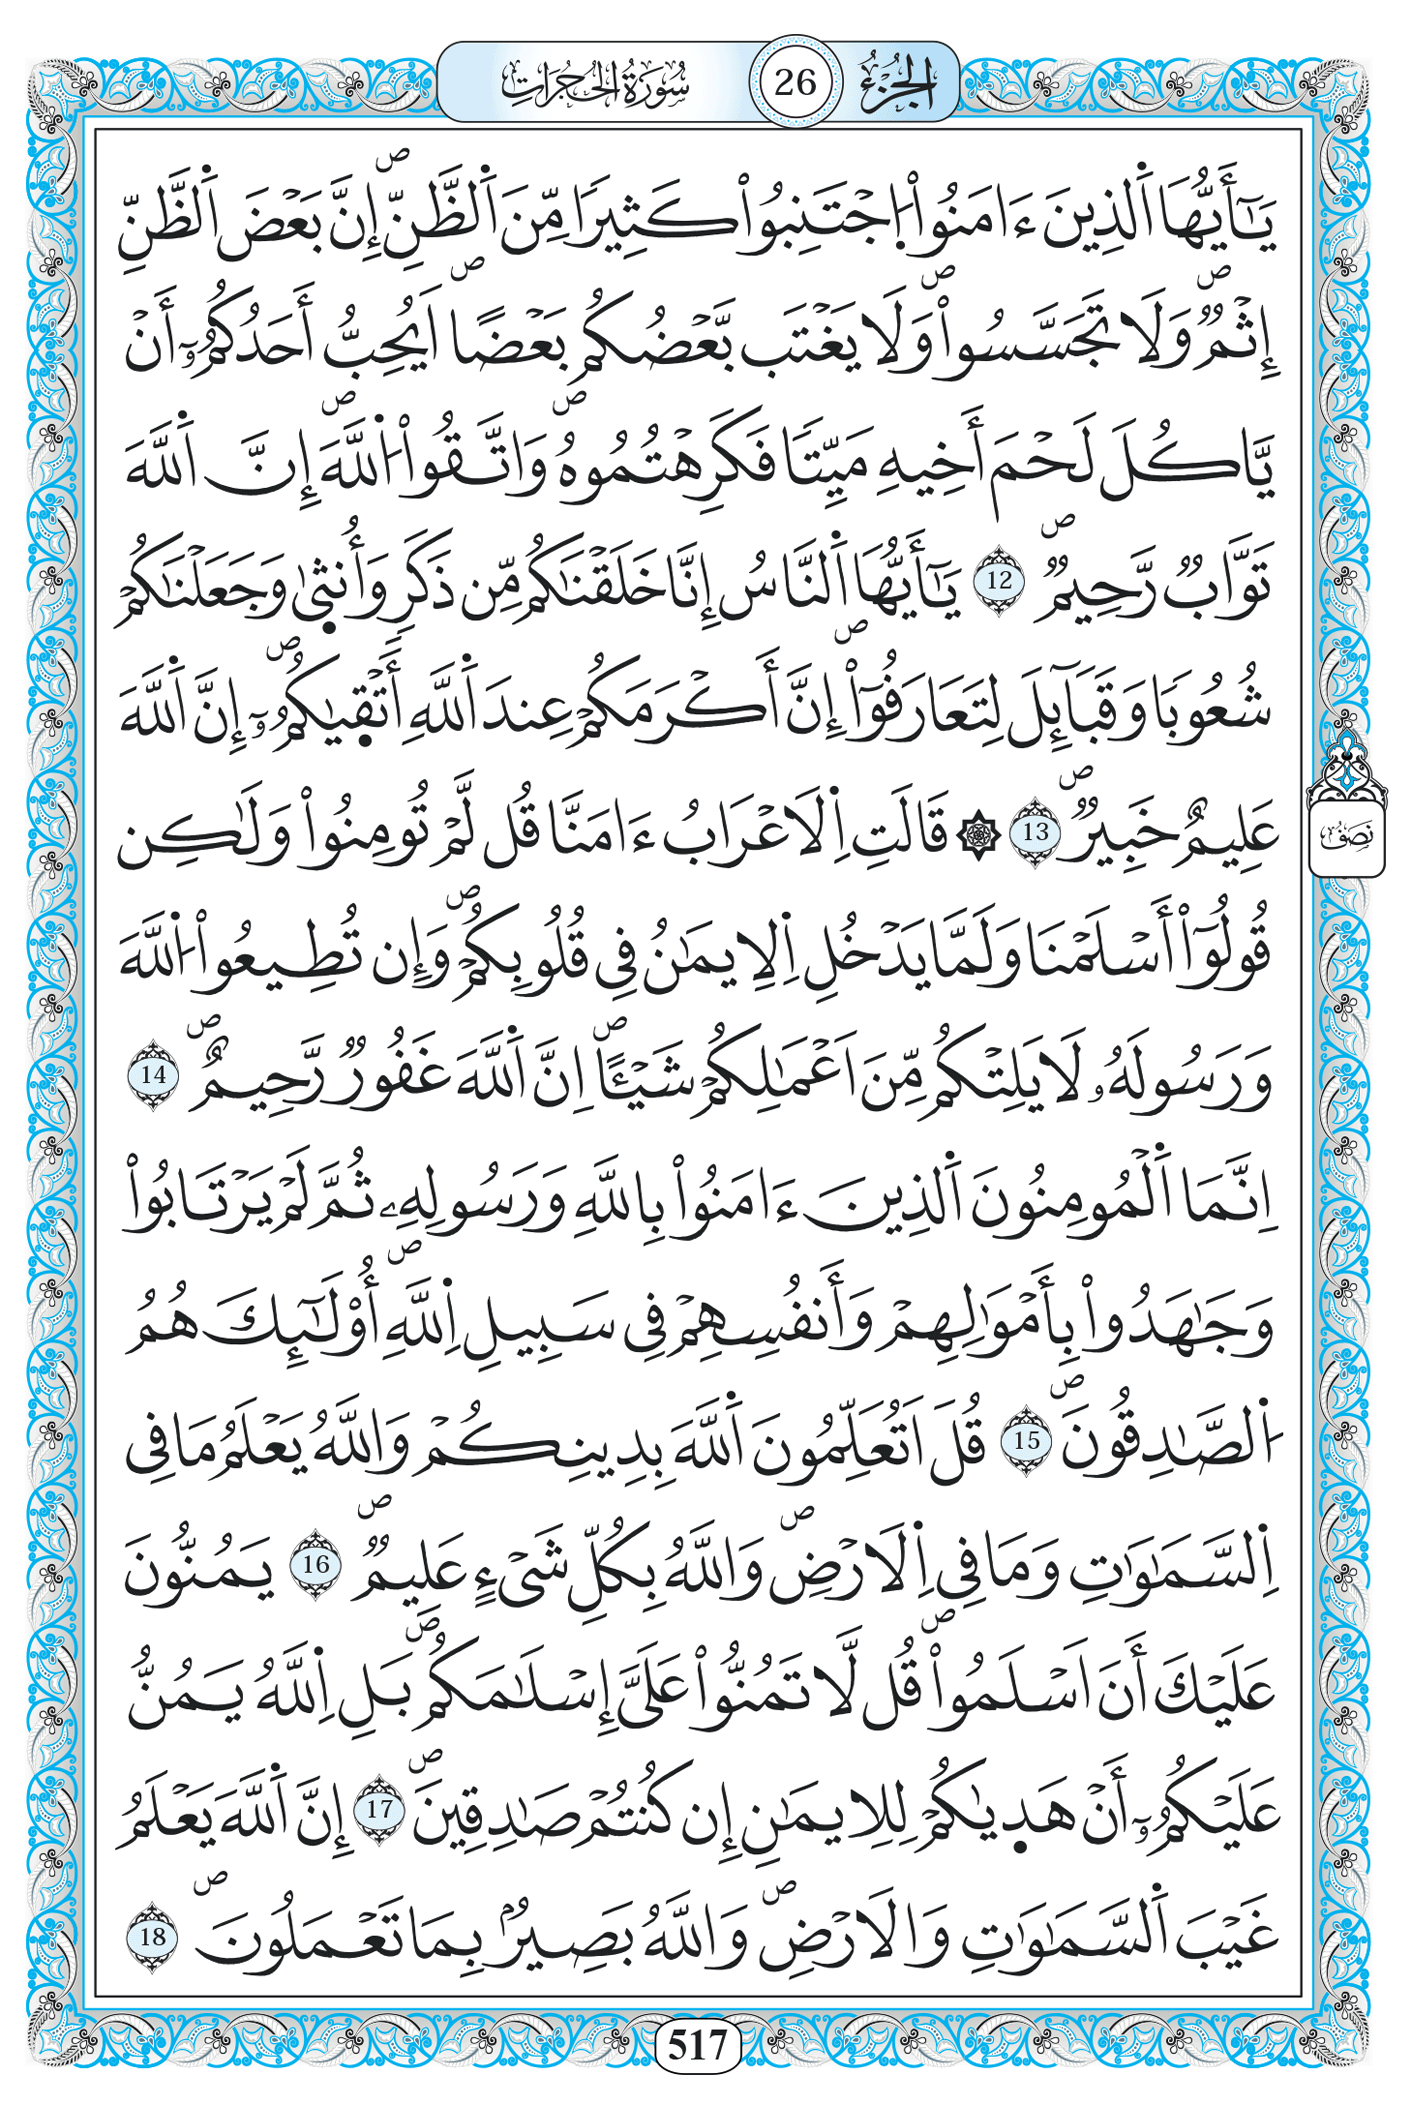 الجزء 26 سورة الحجرات
يَٰٓأَيُّهَا اَ۬لذِينَ ءَامَنُواْ اُ۪جْتَنِبُواْ كَثِيراٗ مِّنَ اَ۬لظَّنِّۖ إِنَّ بَعْضَ اَ۬لظَّنِّ
إِثْمٞۖ وَلَا تَجَسَّسُواْۖ وَلَا يَغْتَب بَّعْضُكُم بَعْضاًۖ اَيُحِبُّ أَحَدُكُمُۥٓ أَنْ
يَّاكُلَ لَحْمَ أَخِيهِ مَيِّتاٗ فَكَرِهْتُمُوهُۖ وَاتَّقُواْ اُ۬للَّهَۖ إِنَّ اَ۬للَّهَ
تَوَّابٞ رَّحِيمٞۖ 12 يَٰٓأَيُّهَا اَ۬لنَّاسُ إِنَّا خَلَقْنَٰكُم مِّن ذَكَرٖ وَأُنث۪يٰ وَجَعَلْنَٰكُمْ
شُعُوباٗ وَقَبَآئِلَ لِتَعَارَفُوٓاْۖ إِنَّ أَكْرَمَكُمْ عِندَ اَ۬للَّهِ أَتْق۪يٰكُمُۥٓۖ إِنَّ اَ۬للَّهَ
عَلِيمٌ خَبِيرٞۖ 13 ۞ قَالَتِ اِ۬لَاعْرَابُ ءَامَنَّا قُل لَّمْ تُومِنُواْ وَلَٰكِن
نصف
قُولُوٓاْ أَسْلَمْنَا وَلَمَّا يَدْخُلِ اِ۬لِايمَٰنُ فِے قُلُوبِكُمْۖ وَإِن تُطِيعُواْ اُ۬للَّهَ
وَرَسُولَهُۥ لَا يَلِتْكُم مِّنَ اَعْمَٰلِكُمْ شَيْـٔاًۖ اِنَّ اَ۬للَّهَ غَفُورٞ رَّحِيمٌۖ 14
اِنَّمَا اَ۬لْمُومِنُونَ اَ۬لذِينَ ءَامَنُواْ بِاللَّهِ وَرَسُولِهِۦ ثُمَّ لَمْ يَرْتَابُواْ
وَجَٰهَدُواْ بِأَمْوَٰلِهِمْ وَأَنفُسِهِمْ فِے سَبِيلِ اِ۬للَّهِۖ أُوْلَٰٓئِكَ هُمُ
اُ۬لصَّٰدِقُونَۖ 15 قُلَ اَتُعَلِّمُونَ اَ۬للَّهَ بِدِينِكُمْ وَاللَّهُ يَعْلَمُ مَا فِے
اِ۬لسَّمَٰوَٰتِ وَمَا فِے اِ۬لَارْضِۖ وَاللَّهُ بِكُلِّ شَےْءٍ عَلِيمٞۖ 16 يَمُنُّونَ
عَلَيْكَ أَنَ اَسْلَمُواْۖ قُل لَّا تَمُنُّواْ عَلَيَّ إِسْلَٰمَكُمۖ بَلِ اِ۬للَّهُ يَمُنُّ
عَلَيْكُمُۥٓ أَنْ هَد۪يٰكُمْ لِلِايمَٰنِ إِن كُنتُمْ صَٰدِقِينَۖ 17 إِنَّ اَ۬للَّهَ يَعْلَمُ
غَيْبَ اَ۬لسَّمَٰوَٰتِ وَالَارْضِۖ وَاللَّهُ بَصِيرُۢ بِمَا تَعْمَلُونَۖ 18
517